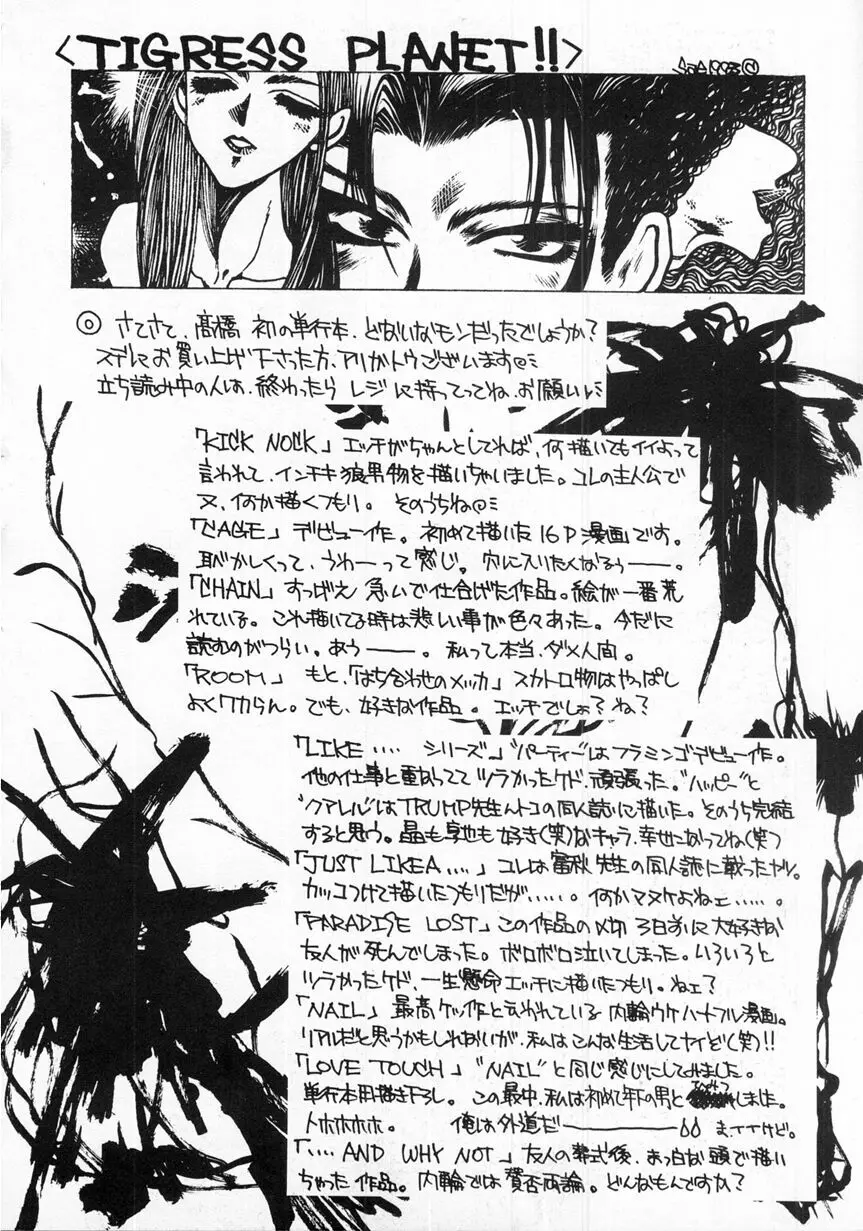 <TIGRESS PLANET!!>
◎ さてさて、髙橋 初の単行本、どないなモンだったでしょうか?
スデにお買い上げ下さった方、アリがトウございます@ミ
立ち読み中の人は、終わったら レジに持ってってね、お願いじミ
「KICK NOCK」エッチがちゃんとしてれば、何描いてもイイよって
言われて、インチキ狼男物を描いちゃいました。コレの主人公で
又、何か描くつもり。そのうちね@ミ
「CAGE」デビュー作。初めて描いた16P漫画です。
恥かしくって、うわーって感じ。穴に入りたくなるぅー。
「CHAIN」すっばえ 急いで仕合げた作品。絵が一番荒
れている。これ描いてる時は悲しい事が色々あった。今だに
読むのがつらい。あうー。私って本当、ダメ人間。
「ROOM」もと、「はち合わせのメッカ」スカトロ物はやっぱし
よくワカらん。でも、好きな作品。エッチでしょ?ね?
「LIKE‥‥シリーズ」"パーティー"はフラミンゴデビュー作。
他の仕事と重なってて ツラかったケド、頑張った。"ハッピー"と
"クアレル"はTRUMP先生んトコの同人誌に描いた。そのうち完結
すると思う。晶も享也も好き(笑)なキャラ、幸せになってね(笑)
「JUST LIKE A‥‥」コレは 富秋先生の同人誌に載ったヤツ。
カッコつけて描いたつもりだが‥‥‥。何かマヌケよねェ‥‥‥。
「PARADISE LOST」この作品の〆切 3日前に大好きな
友人が死んでしまった。ボロボロ泣いてしまった。いろいろと
ツラかったケド、一生懸命エッチに描いたつもり。ねェ?
「NAIL」最高ケッ作と云われている 内輪ウケハートフル漫画。
リアルだと思うかもしれないが、私はこんな生活してナイぞ(笑)!!
「LOVE TOUCH」"NAIL"と同じ感じにしてみました。
単行本用描き下ろし。この最中、私は初めて年下の男と しました。
トホホホホ。 俺は外道だー ま、イイけど。
「‥‥AND WHY NOT」友人の葬式後、まっ白な頭で描い
ちゃった作品。内輪では賛否両論。どんなもんですか?